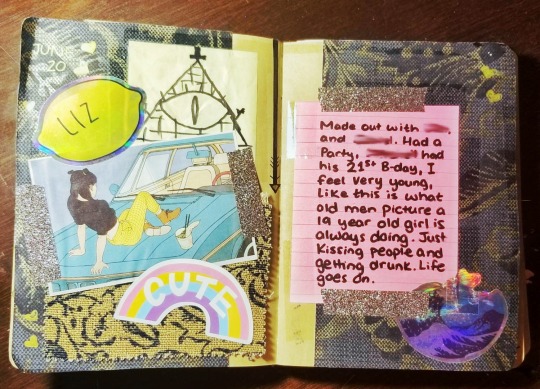 JUNE
20
LIZ
CUTE
Made out with
and . Had a
Party, had
his 21st B-day, I
feel very young,
Like this is what
old men picture a
19 year old girl is
always doing. Just
Kissing people and
getting drunk. Life
goes on.